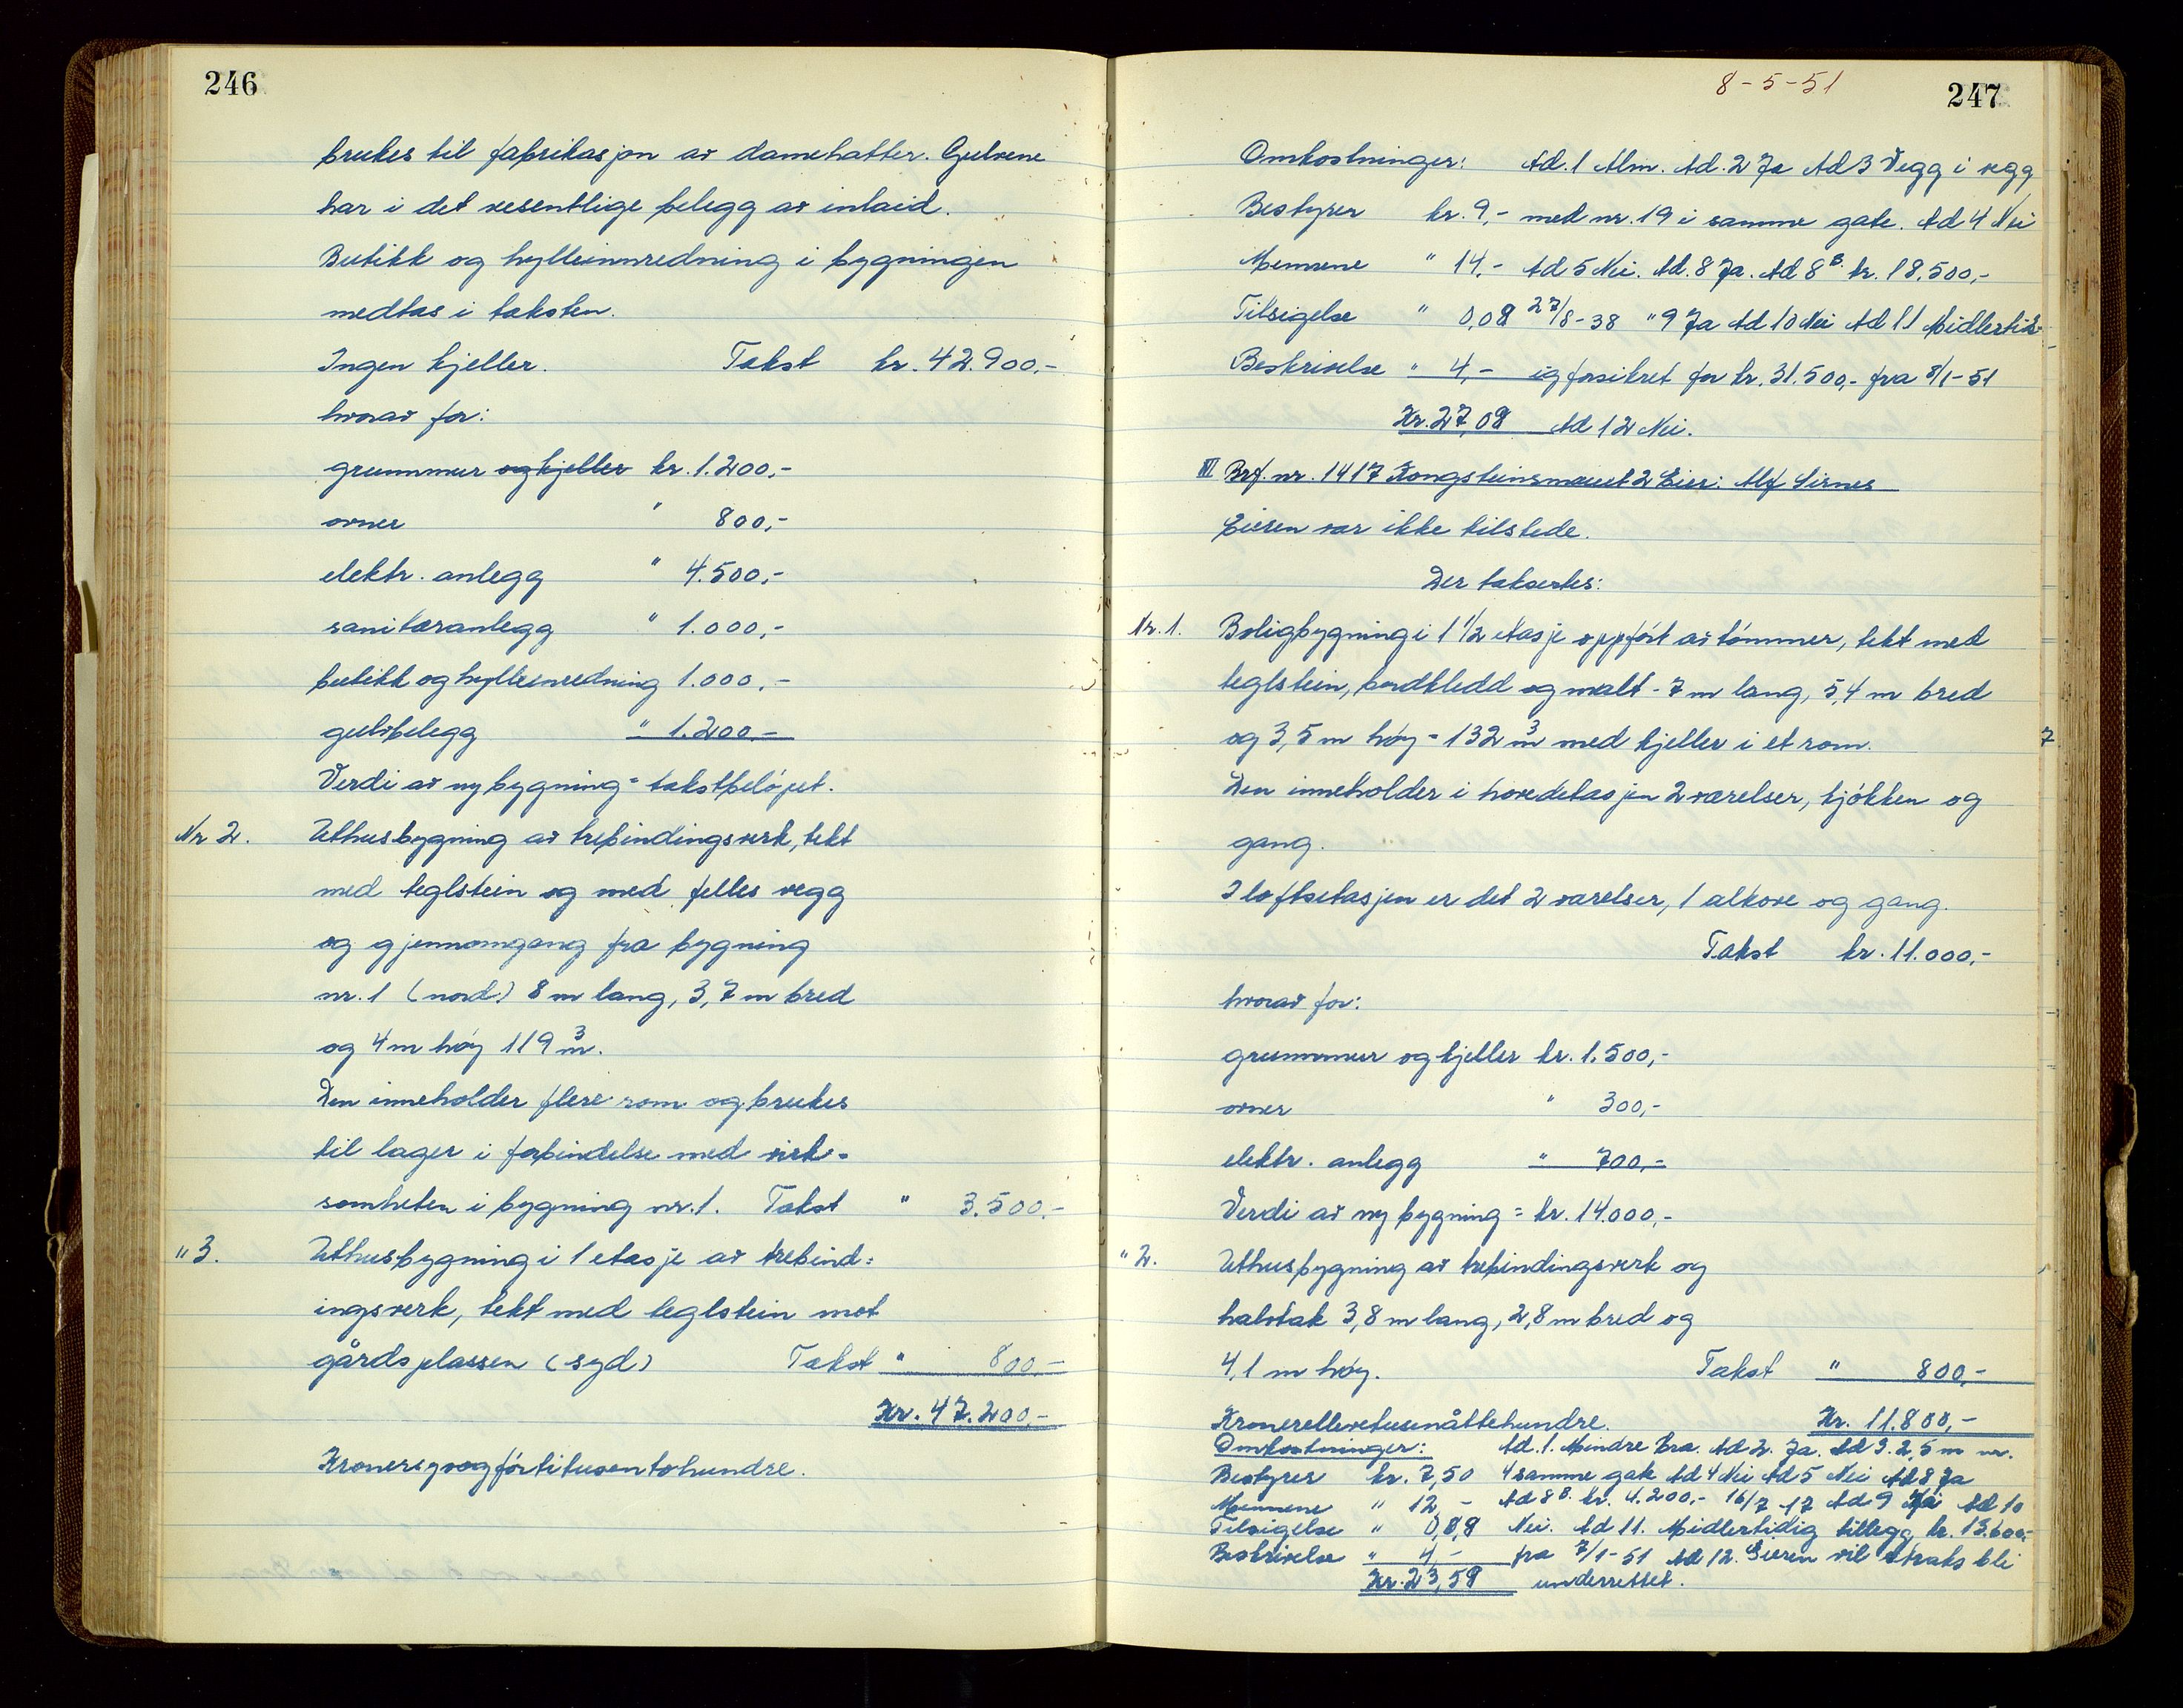 246
brukes til fabrikasjon av damehatter. Gulvene
har i det vesentlige belegg av inlaid.
Butikk og hylleinnredning i bygningen
medtas i taksten.
Ingen kjeller. Takst kr. 42.900,-
hvorav for:
grunnmur og kjeller kr. 1.200,-
ovner " 800,-
elektr. anlegg " 4.500,-
sanitæranlegg " 1.000,-
butikk og hylleinredning 1.000,-
gulvbelegg " 1.200,-
Verdi av ny bygning = takstbeløpet.
Nr 2. Uthusbygning av trebindingsverk, tekt
med teglstein og med felles vegg
og gjennomgang fra bygning
nr. 1 (nord) 8 m lang, 3,7 m bred
og 4 m høy 119 m3.
Den inneholder flere rom og brukes
til lager i forbindelse med virk-
somheten i bygning nr. 1. Takst " 3.500,-
" 3. Uthusbygning i 1 etasje av trebind=
ingsverk, tekt med teglstein mot
gårdsplassen (syd) Takst " 800,-
Kr. 47.200,-
Kronersyvogførtitusentohundre.
8-5-51
247
Omkostninger: Ad. 1 Alm. Ad. 2 Ja Ad 3 Vegg i vegg
Bestyrer kr. 9,- med nr. 19 i samme gate. Ad 4 Nei
Mennene " 14,- Ad 5 Nei. Ad. 8 Ja. Ad 8 B. kr. 18.500,-
Tilsigelse " 0,08 27/8-38 " 9 Ja Ad 10 Nei Ad 11 Midlertid-
Beskrivelse " 4,- ig forsikret for kr. 31.500,- fra 8/1-51
Kr. 27,08 Ad 12 Nei.
III Brf. nr. 1417 Kongsteinsmauet 2 Eier: Alf Sirnes
Eieren var ikke tilstede.
Der taksertes:
Nr. 1. Boligbygning i 1 1/2 etasje oppført av tømmer, tekt med
teglstein, bordkledd og malt - 7 m lang, 5,4 m bred
og 3,5 m høy = 132 m3 med kjeller i et rom.
Den inneholder i hovedetasjen 2 værelser, kjøkken og
gang.
I loftsetasjen er det 2 værelser, 1 alkove og gang.
Takst kr. 11.000,-
hvorav for:
grunnmur og kjeller kr. 1.500,-
ovner " 300,-
elektr. anlegg " 700,-
Verdi av ny bygning = kr. 14.000,-
" 2. Uthusbygning av trebindingsverk og
halvtak 3,8 m lang, 2,8 m bred og
4,1 m høy. Takst " 800,-
Kronerellevetusenåttehundre. Kr. 11.800,-
Omkostninger: Ad. 1. Mindre bra. Ad 2. Ja. Ad 3. 2,5 m nr.
Bestyrer kr. 7,50 4 samme gate Ad 4 Nei Ad 5 Nei Ad 8 Ja
Mennene " 12,- Ad 8 B. kr. 4.200,- 16/7-17 Ad 9 Ja Ad 10
Tilsigelse " 0,09 Nei. Ad 11. Midlertidig tillegg kr. 13.600,-
Beskrivelse " 4,- fra 7/1-51 Ad 12. Eieren vil straks bli
Kr. 23,59 underrettet.